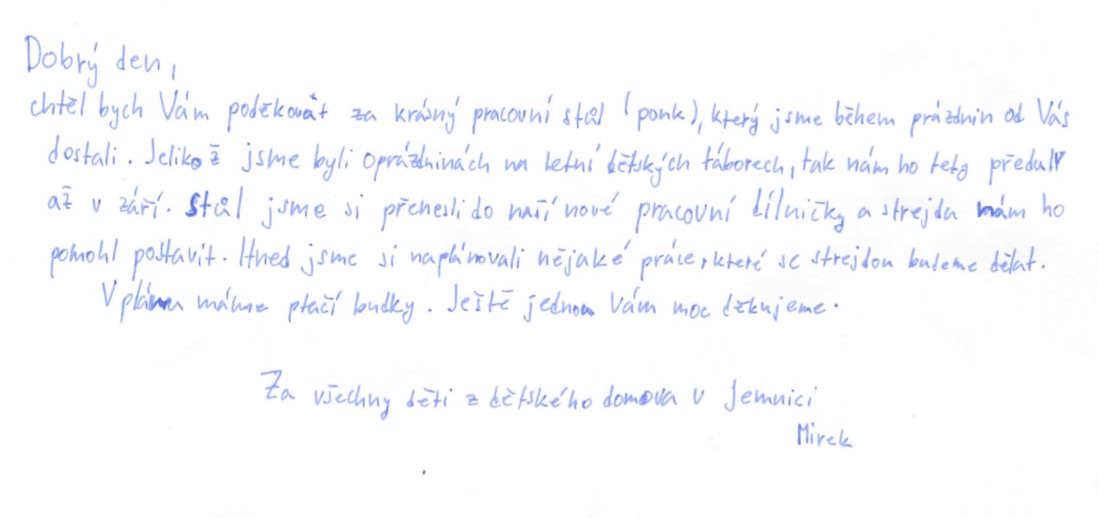 Dobrý den,
chtěl bych Vám poděkovat za krásný pracovní stůl (ponk), který jsme během prázdnin od Vás
dostali. Jelikož jsme byli oprázdninách na letní dětských táborech, tak nám ho tety předaly
až v září. Stůl jsme si přenesli do naší nové pracovní dílničky a strejda nám ho
pomohl postavit. Hned jsme si naplánovali nějaké práce, které se strejdou budeme dělat.
V plánu máme ptačí budky. Ještě jednou Vám moc děkujeme.
Za všechny děti z dětského domova v Jemnici
Mirek